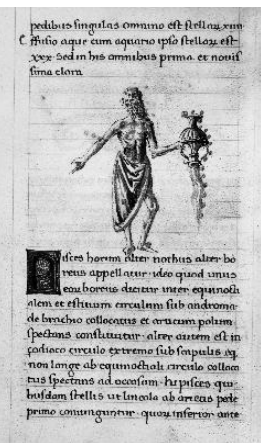 pedibus singulas omnino est stellaꝝ xuii
Effusio aque cum aquario ipso stellaꝝ est
xxx. Sed in his omnibus prima et novis
sima clara
Pisces horum alter nothus alter bo
reus appellatur. ideo quod unus
eoꝝ boreus dicitur inter equinocti
alem et estivum circulum sub androme
de brachio collocatus et arcticum polum
spectans constituitur. alter autem est in
zodiaco circulo extremo sub scapulis eq
non longe ab equinoctiali circulo colloca
tus spectans ad occasum. hi pisces qui
busdam stellis ut lineola ab arietis pede
primo coniunguntur. quoꝝ inferior ante